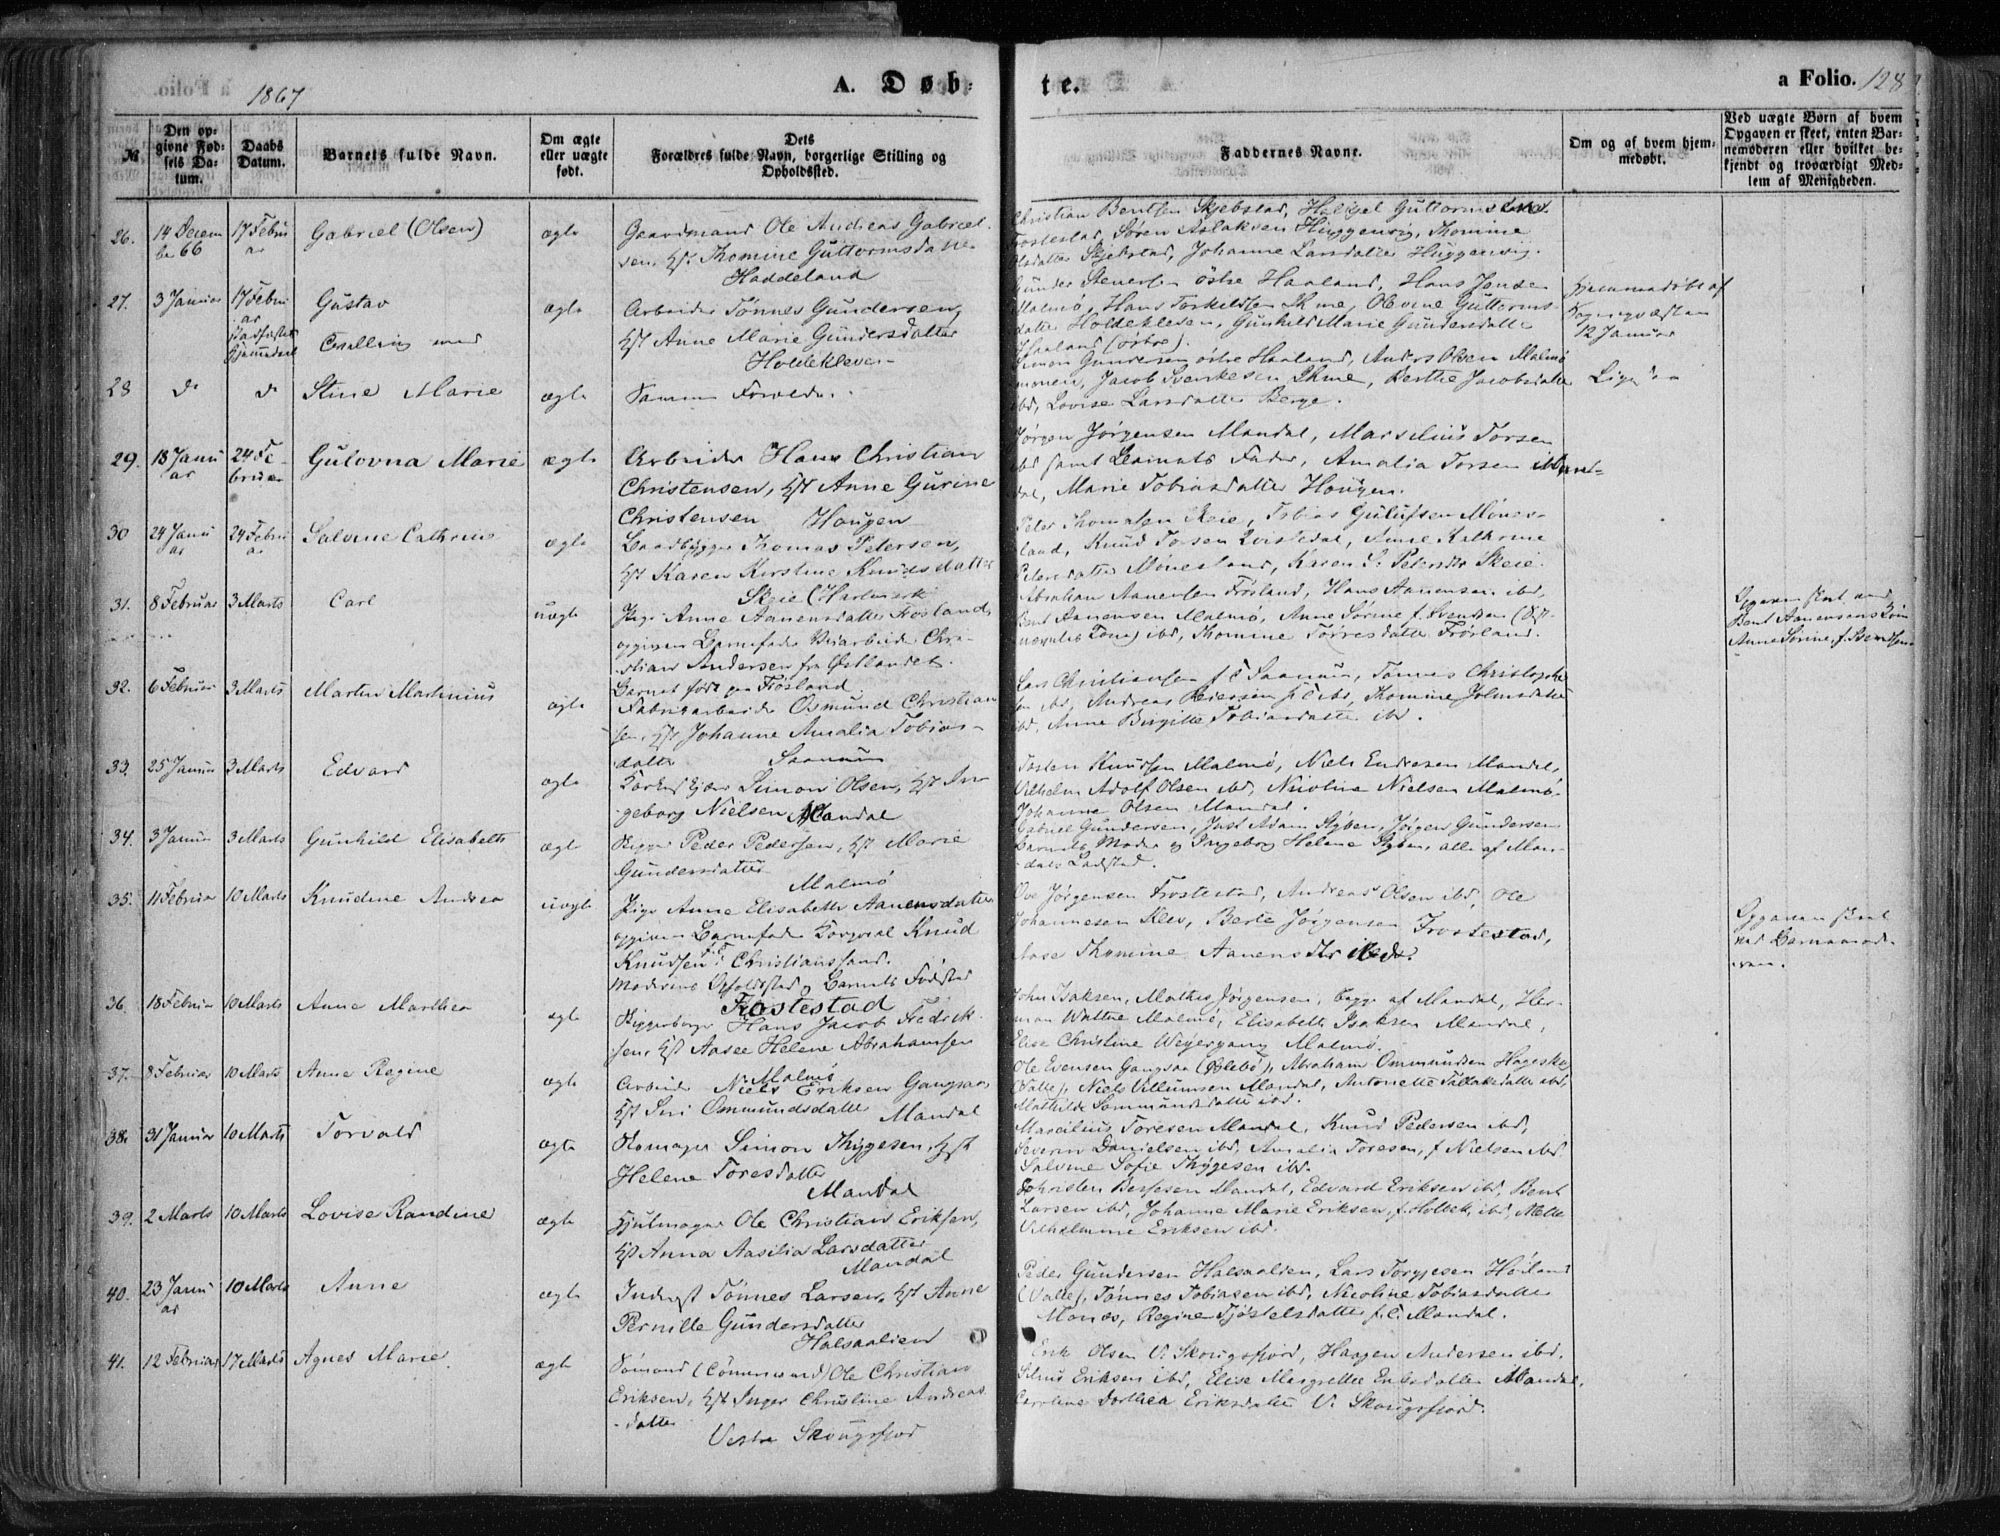 1867
A. Døb-
te.
a Folio. 128
№
Den op-
givne Fød-
sels Da-
tum.
Daabs
Datum.
Barnets fulde Navn.
Om ægte
eller uægte
født.
Dets
Forældres fulde Navn, borgerlige Stilling og
Opholdssted.
Faddernes Navne.
Om og af hvem hjem-
medøbt.
Ved uægte Børn af hvem
Opgaven er skeet, enten Bar-
nemoderen eller hvilket be-
kjendt og troværdigt Med-
lem af Menigheden.
26. 14 Decem 17 Febru Gabriel (Olsen) ægte Gaardmand Ole Andreas Gabriel-
ber 66 ar sen, Hst Thomine Guttormsdatter
Haddeland
Christian Bentsen Skjebstad,
Frostestad, Søren Aslaksen Huggenvig, Thomine
Olsdatter Skjebstad, Johanne Larsdatter Huggenvig.
27. 3 Januar 17 Febru Gustav ægte Arbeider Tønnes Gundersen,
ar Tvilling med Hst Anne Marie Gundersdatter
Holdekleven
Gunder Stenersen østre Haaland, Hans Jansen
Malmø, Hans Torkildsen Ihme, Olevine Guttorms-
datter Holdekleven, Gunhild Marie Gundersdatter
Haaland (østre).
hjemmedøbt af
12 Januar
28 do do Stine Marie ægte Samme Forældre.
Simon Gundersen østre Haaland, Anders Olsen Malmø
Jacob Svenkesen Ihme, Berthe Jacobsdatter
ibd, Lovise Larsdatter Berge.
Ligesaa
29. 18 Janu 24 Fe- Gulovna Marie ægte Arbeider Hans Christian
ar bruar Christensen, Hst Anne Gurine
Christensen Hougen
Jørgen Jørgensen Mandal, Marselius Torsen
ibd samt Barnets Fader, Amalia Torsen Man-
dal, Marie Tobiasdatter Hougen.
30 24 Janu 24 Febru Salvine Cathrine ægte Baadbygger Thomas Petersen,
ar ar Hst Karen Kirstine Knudsdatter
Skeie (Hartmark)
Peter Thomasen Skeie, Tobias Gulufsen Mones-
land, Knud Torsen Qvisledal, Anne Kathrine
Petersdatter Monesland, Karen S. Petersdtr Skeie.
31. 8 Februar 3 Marts Carl uægte Pige Anne Aanensdatter Frøsland,
opgiven Barnefader Veiarbeider Chri-
stian Andersen fra Østlandet.
Barnet født paa Frøsland
Abraham Aanensen Frøsland, Hans Aanensen ibd,
Bent Aanensen Malmø, Anne Sørine f. Svendsen
Kone) ibd, Thomine Torresdatter Frøsland.
Opgaven skeet ved
Bent Aanensens Kone
Anne Sørine, f. Svendsen
32. 6 Februar 3 Marts Martin Martinius ægte Fabrikarbeider Osmund Christian
sen, Hst Johanne Amalia Tobias-
datter Saanum
Lars Christiansen f.C. Saanum, Tønnes Christophe
sen ibd, Andreas Reiersen f.C. ibd, Thomine Johnsdatter
ibd, Anne Birgitte Tobiasdatter ibd.
33. 25 Januar 3 Marts Edvard ægte Simon Olsen, Hst In-
geborg Nielsen Mandal
Knudsen Malmø, Niels Endresen Mandal,
Vilhelm Adolf Olsen ibd, Nicoline Nielsen Malmø
Johanne Olsen Mandal.
34. 3 Januar 3 Marts Gunhild Elisabeth ægte Rigger Peder Pedersen, Hst Marie
Gundersdatter
Malmø
Gabriel Gundersen, Just Adam Styben, Jørgen Gundersen
Barnets Moder og Ingeborg Helene Styben, alle af Man-
dals Ladested.
35. 11 Februar 10 Marts Knudine Andrea uægte Pige Anne Elisabeth Aanensdatter
opgiven Barnefader Korporal Knud
Knudsen f.C. Christianssand.
Moderens Opholdssted og Barnets Fødested
Frostestad
Ove Jørgensen Frostestad, Andreas Olsen ibd, Ole
Johannesen Klev, Berte Jørgensen Frostestad,
Aase Thomine Aanensdtr
Opgaven skeet
ved Barnemode-
ren.
36. 18 Februar 10 Marts Anne Marthea ægte Hans Jacob Fredrik-
sen, Hst Aasee Helene Abrahamsen
Malmø
John Isaksen, Mathis Jørgensen, begge af Mandal, Her-
man Wattne Malmø, Elisabeth Isaksen Mandal,
Elise Christine Weyergang Malmø.
37. 8 Februar 10 Marts Anne Regine ægte Arbeider Niels Eriksen Gangsaa,
Hst Siri Ommundsdatter Mandal
Ole Evensen Gangsaa (Øslebø), Abraham Ommundsen
(Valle), Niels Villumsen Mandal, Antonette Tallaksdatter ibd,
Mathilde ibd.
38. 31 Januar 10 Marts Torvald ægte Skomager Simon Thygesen, Hst
Helene Toresdatter
Mandal
Marcilius Toresen Mandal, Knud Pedersen ibd,
Severin Danielsen ibd, Amalia Toresen, f. Nielsen ibd
Salvine Sofie Thygesen ibd.
39. 2 Marts 10 Marts Lovise Randine ægte Hjulmager Ole Christian Eriksen,
Hst Anna Aasilia Larsdatter
Mandal
Christen Mandal, Edvard Eriksen ibd, Bent
Larsen ibd, Johanne Marie Eriksen, f. Holbek, ibd, Mette
Vilhelmine Eriksen ibd.
40. 23 Janu 10 Marts Anne ægte Inderst Tønnes Larsen, Hst Anne
ar Pernille Gundersdatter
Halsaalien
Peder Gundersen Halsaalien, Lars Torgjesen Høiland
(Valle), Tønnes Tobiasen ibd, Nicoline Tobiasdatter
Mones, Regine Tjøstelsdatter f.C. Mandal.
41. 12 Februar 17 Marts Agnes Marie ægte Sømand (Tømmermand) Ole Christian
Eriksen, Hst Inger Christine Andreas-
datter
Vestre Skougsfjord
Erik Olsen V. Skougsfjord, Haagen Andersen ibd.
Eriksen ibd, Elise Margrethe Eriksdatter Mandal,
Caroline Dorthea Eriksdatter V. Skougsfjord.